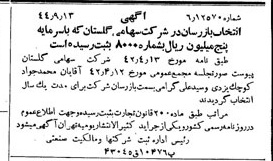 شماره ۶/۱۲۵۷۰ آگهی ۴۴/۹/۱۳
انتخاب بازرسان در شرکت سهامی گلستان که با سرمایه
پنج میلیون ریال بشماره ۸۰۰۰ ثبت رسیده است
طبق نامه مورخ ۴۲/۴/۱۳ شرکت سهامی گلستان
پیوست صورتجلسه مجمع عمومی مورخ ۴۲/۴/۱۲ آقایان محمد جواد
کوچک یزدی وسید علی گرامی بسمت بازرسان شرکت برای مدت یك سال
انتخاب گردیدند
مراتب طبق ماده ۲۰۰ قانون تجارت ثبت رسیده وجهت اطلاع عموم
در روزنامه رسمی کشور ویکی از جراید کثیرالانتشار یومیه تهران آگهی میشود
اداره ثبت شرکتها و مالکیت صنعتی